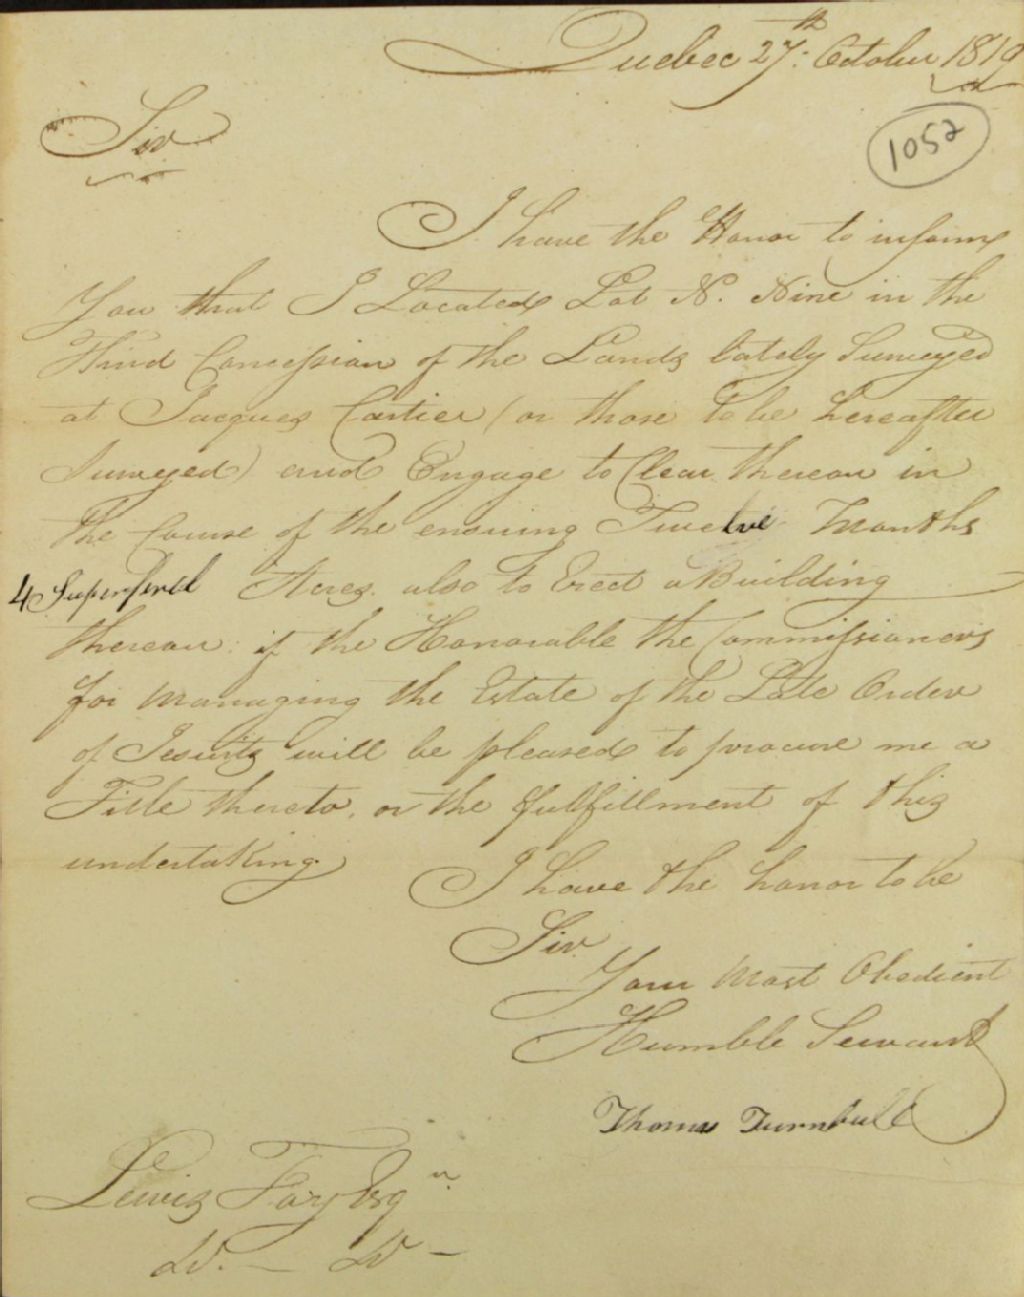 Quebec 27.th October 1819
Sir
1052
I have the Honor to inform
You that I Located Lot N. Nine in the
Third Concession of the Lands lately Surveyed
at Jacques Cartier (or those to be hereafter
Surveyed) and Engage to Clear thereon in
the Course of the ensuing Twelve Months
4 Superficial Acres. also to Erect a Building
thereon: if the Honorable the Commissioners
for Managing the Estate of the Late Order
of Jesuits will be pleased to procure me a
Title thereto, on the fulfillment of this
undertaking.
I have the honor to be
Sir.
Your Most Obedient
Humble Servant
Thomas Turnbull
Lewis Foy Esqr